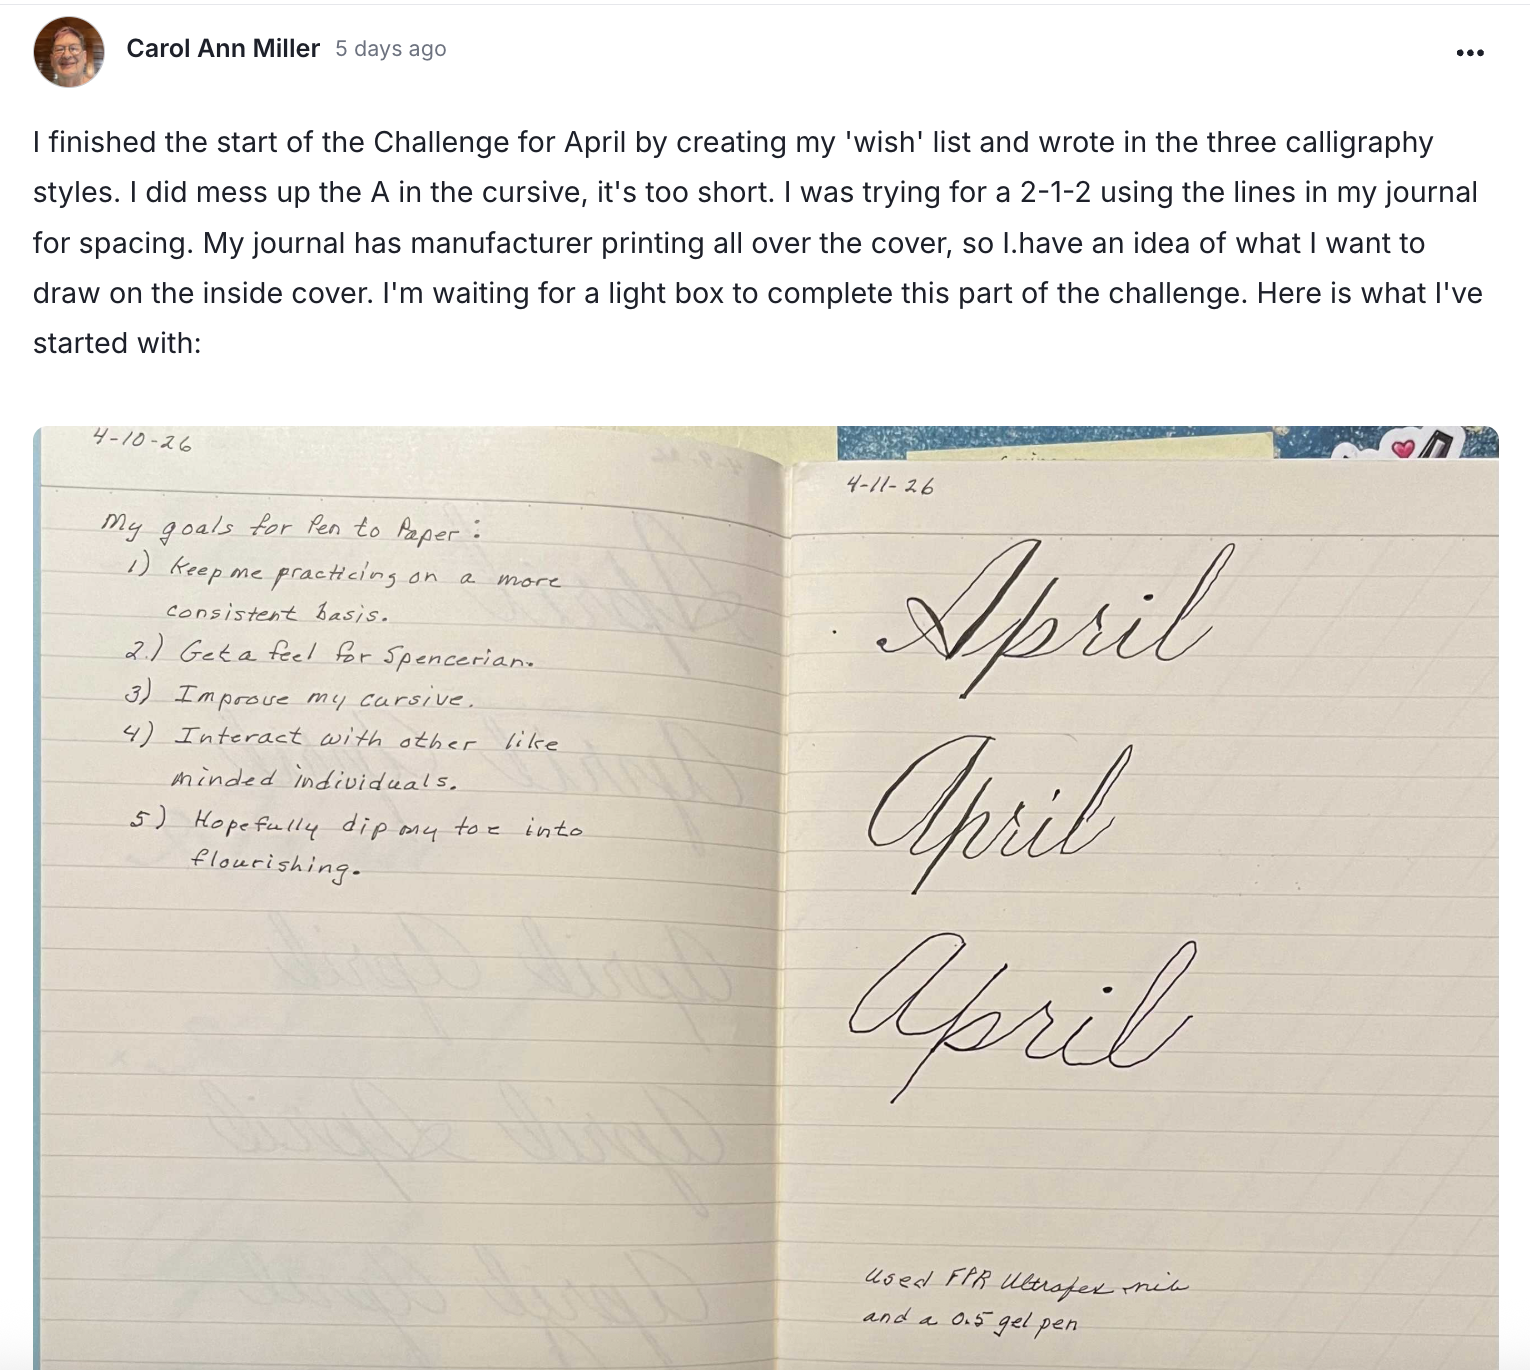 Carol Ann Miller 5 days ago
I finished the start of the Challenge for April by creating my 'wish' list and wrote in the three calligraphy
styles. I did mess up the A in the cursive, it's too short. I was trying for a 2-1-2 using the lines in my journal
for spacing. My journal has manufacturer printing all over the cover, so I.have an idea of what I want to
draw on the inside cover. I'm waiting for a light box to complete this part of the challenge. Here is what I've
started with:
4-10-26
My goals for Pen to Paper:
1) Keep me practicing on a more
consistent basis.
2.) Get a feel for Spencerian.
3) Improve my cursive.
4) Interact with other like
minded individuals.
5) Hopefully dip my toe into
flourishing.
4-11-26
April
April
April
Used FPR Ultraflex nib
and a 0.5 gel pen